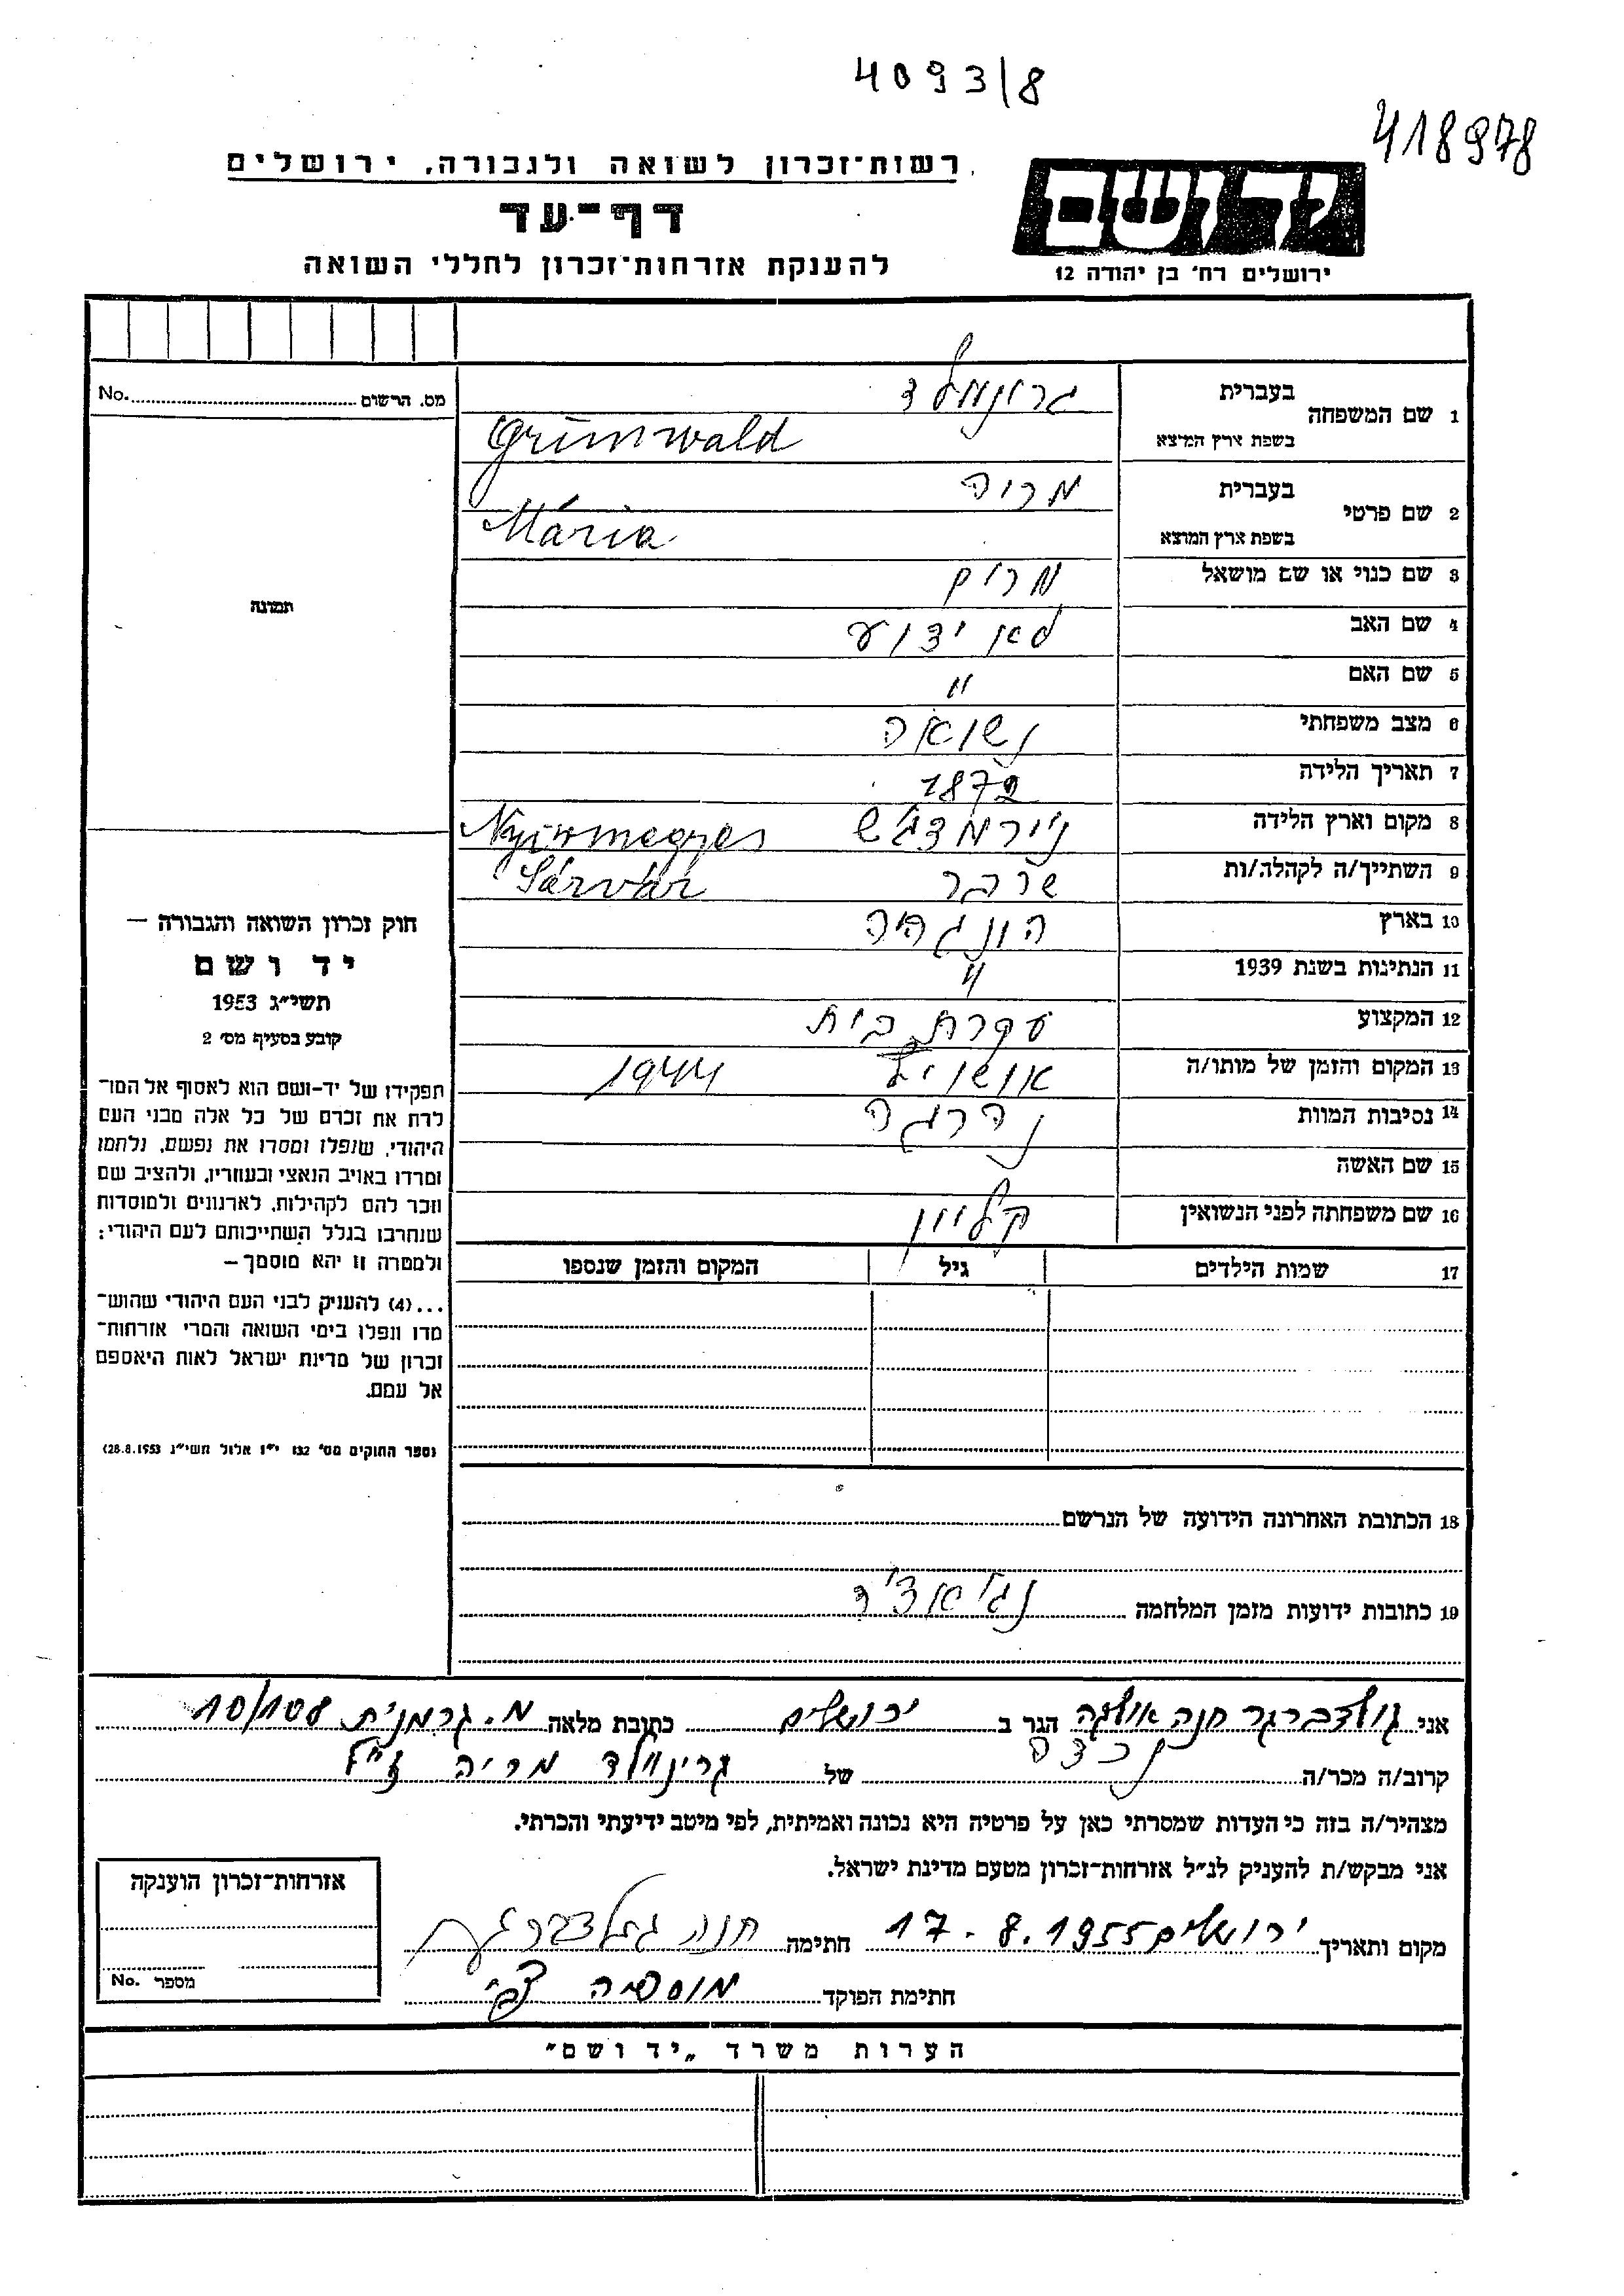 4093/8
418978
רשות־זכרון לשואה ולגבורה, ירושלים
דף־עד
להענקת אזרחות־זכרון לחללי השואה
יד ושם
ירושלים רח' בן יהודה 12
מס. הרשום No.
1 שם המשפחה
בעברית גרונוולד
בשפת ארץ המוצא Grünwald
2 שם פרטי
בעברית מריה
בשפת ארץ המוצא Mária
3 שם כנוי או שם מושאל מרים
4 שם האב לא ידוע
5 שם האם "
6 מצב משפחתי נשואה
7 תאריך הלידה 1872
8 מקום וארץ הלידה
9 השתייך/ה לקהלה/ות שרבר Sárvár
10 בארץ הונגריה
11 הנתינות בשנת 1939 "
12 המקצוע עקרת בית
13 המקום והזמן של מותו/ה אושויץ 1944
14 נסיבות המוות נהרגה
15 שם האשה
16 שם משפחתה לפני הנשואין קליין
17 שמות הילדים גיל המקום והזמן שנספו
18 הכתובת האחרונה הידועה של הנרשם
19 כתובות ידועות מזמן המלחמה
תמונה
חוק זכרון השואה והגבורה —
יד ושם
תשי"ג 1953
קובע בסעיף מס' 2
תפקידו של יד-ושם הוא לאסוף אל המו־
לדת את זכרם של כל אלה מבני העם
היהודי, שנפלו ומסרו את נפשם, נלחמו
ומרדו באויב הנאצי ובעוזריו, ולהציב שם
וזכר להם לקהילות, לארגונים ולמוסדות
שנחרבו בגלל השתייכותם לעם היהודי;
ולמטרה זו יהא מוסמך —
...(4) להעניק לבני העם היהודי שהוש־
מדו ונפלו בימי השואה והמרי אזרחות־
זכרון של מדינת ישראל לאות היאספם
אל עמם.
(ספר החוקים מס' 132 י"ז אלול תשי"ג 28.8.1953)
אני גולדברגר חנה אולגה הגר ב ירושלים כתובת מלאה מ. גרמנית 10/108
קרוב/ה מכר/ה נכדה של גרינוולד מריה ז"ל
מצהיר/ה בזה כי העדות שמסרתי כאן על פרטיה היא נכונה ואמיתית, לפי מיטב ידיעתי והכרתי.
אני מבקש/ת להעניק לנ"ל אזרחות־זכרון מטעם מדינת ישראל.
מקום ותאריך ירושלים 17.8.1955 חתימה חנה גולדברגר
חתימת הפוקד
אזרחות־זכרון הוענקה
מספר No.
הערות משרד „יד ושם"